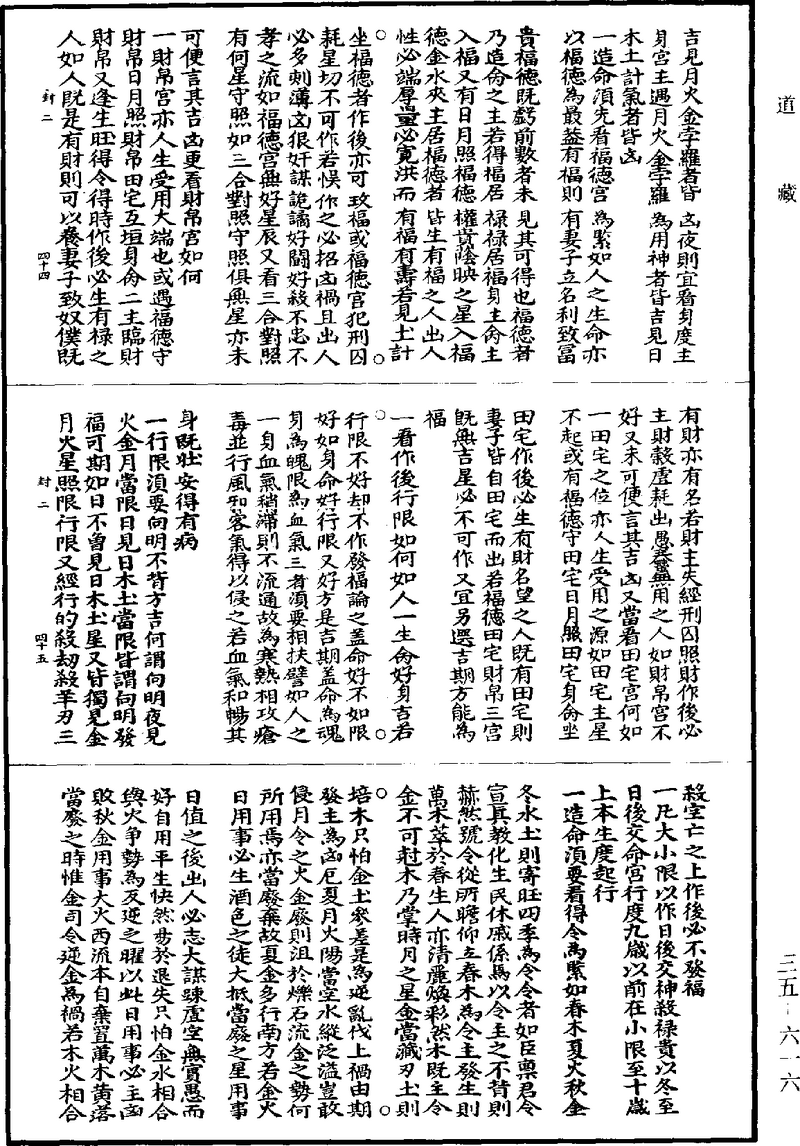 道藏
吉見月火金孛羅者皆凶夜則宜看身度主
身宮主遇月火金孛羅為用神者皆吉見日
木土計氣者皆凶
一造命須先看福德宮為緊如人之生命亦
以福德為最益有福則有妻子立名利致富
貴福德既虧前數者未見其可得也福德者
乃造命之主若得福居祿祿居福身主命主
入福又有日月照福德權貴陰映之星入福
德金水夾主居福德者皆生有福之人出人
性必端厚量必寬洪而有福有壽若見土計
坐福德者作後亦可致福或福德宮犯刑囚
耗星切不可作若悮作之必招凶禍且出人
必多刺薄凶很奸謀詭譎好鬪好殺不忠不
孝之流如福德宮無好星辰又看三合對照
有何星守照如三合對照守照俱無星亦未
可便言其吉凶更看財帛宮如何
一財帛宮亦人生受用大端也或遇福德守
財帛日月照財帛田宅互垣身命二主臨財
財帛又逢生旺得令得時作後必生有祿之
人如人既是有財則可以養妻子致奴僕既
封二
四十四
有財亦有名若財主失經刑囚照財作後必
主財穀虛耗出愚蠢無用之人如財帛宮不
好又未可便言其吉凶又當看田宅宮何如
一田宅之位亦人生受用之源如田宅主星
不起或有福德守田宅日月照田宅身命坐
田宅作後必生有財名望之人既有田宅則
妻子皆自田宅而出若福德田宅財帛三宮
既無吉星必不可作又宜另選吉期方能為
福
一看作後行限如何如人一生命好身吉若
行限不好却不作發福論之蓋命好不如限
好如身命好行限又好方是吉期蓋命為魂
身為魄限為血氣三者須要相扶譬如人之
一身血氣稍滯則不流通故為寒熱相攻瘡
毒並行風和客氣得以侵之若血氣和暢其
身既壯安得有病
一行限須要向明不背方吉何謂向明夜見
火金月當限日見日木土當限皆謂向明發
福可期如日不曾見日木土星又皆獨見金
月火星照限行限又經行的殺劫殺羊刃三
封二
四十五
殺空亡之上作後必不發福
一凡大小限以作日後交神殺祿貴以冬至
日後交命宮行度九歲以前在小限至十歲
上本生度起行
一造命須要看得令為緊如春木夏火秋金
冬水土則寄旺四季為令令者如臣稟君令
宣其教化生民休戚係焉以令主之不背則
赫然號令從所瞻仰立春木為令主發生則
萬木萃於春生人亦清麗煥彩然木既主令
金不可尅木乃掌時月之星金當藏刃土則
培木只怕金土參差是為逆亂伐上禍由期
發主為凶厄夏月火陽當空水縱泛溢豈敢
侵月令之火金廢則沮於爍石流金之勢何
所用焉亦當廢棄故夏金多行南方若金火
日用事必生酒色之徒大抵當廢之星用事
日值之後出人必志大謀疎虛空無實愚而
好自用平生快然易於退失只怕金水相合
與火爭勢為反逆之曜以此日用事必主凶
敗秋金用事大火西流本自棄置萬木黃落
當廢之時惟金司令逆金為禍若木火相合
三五-六一六